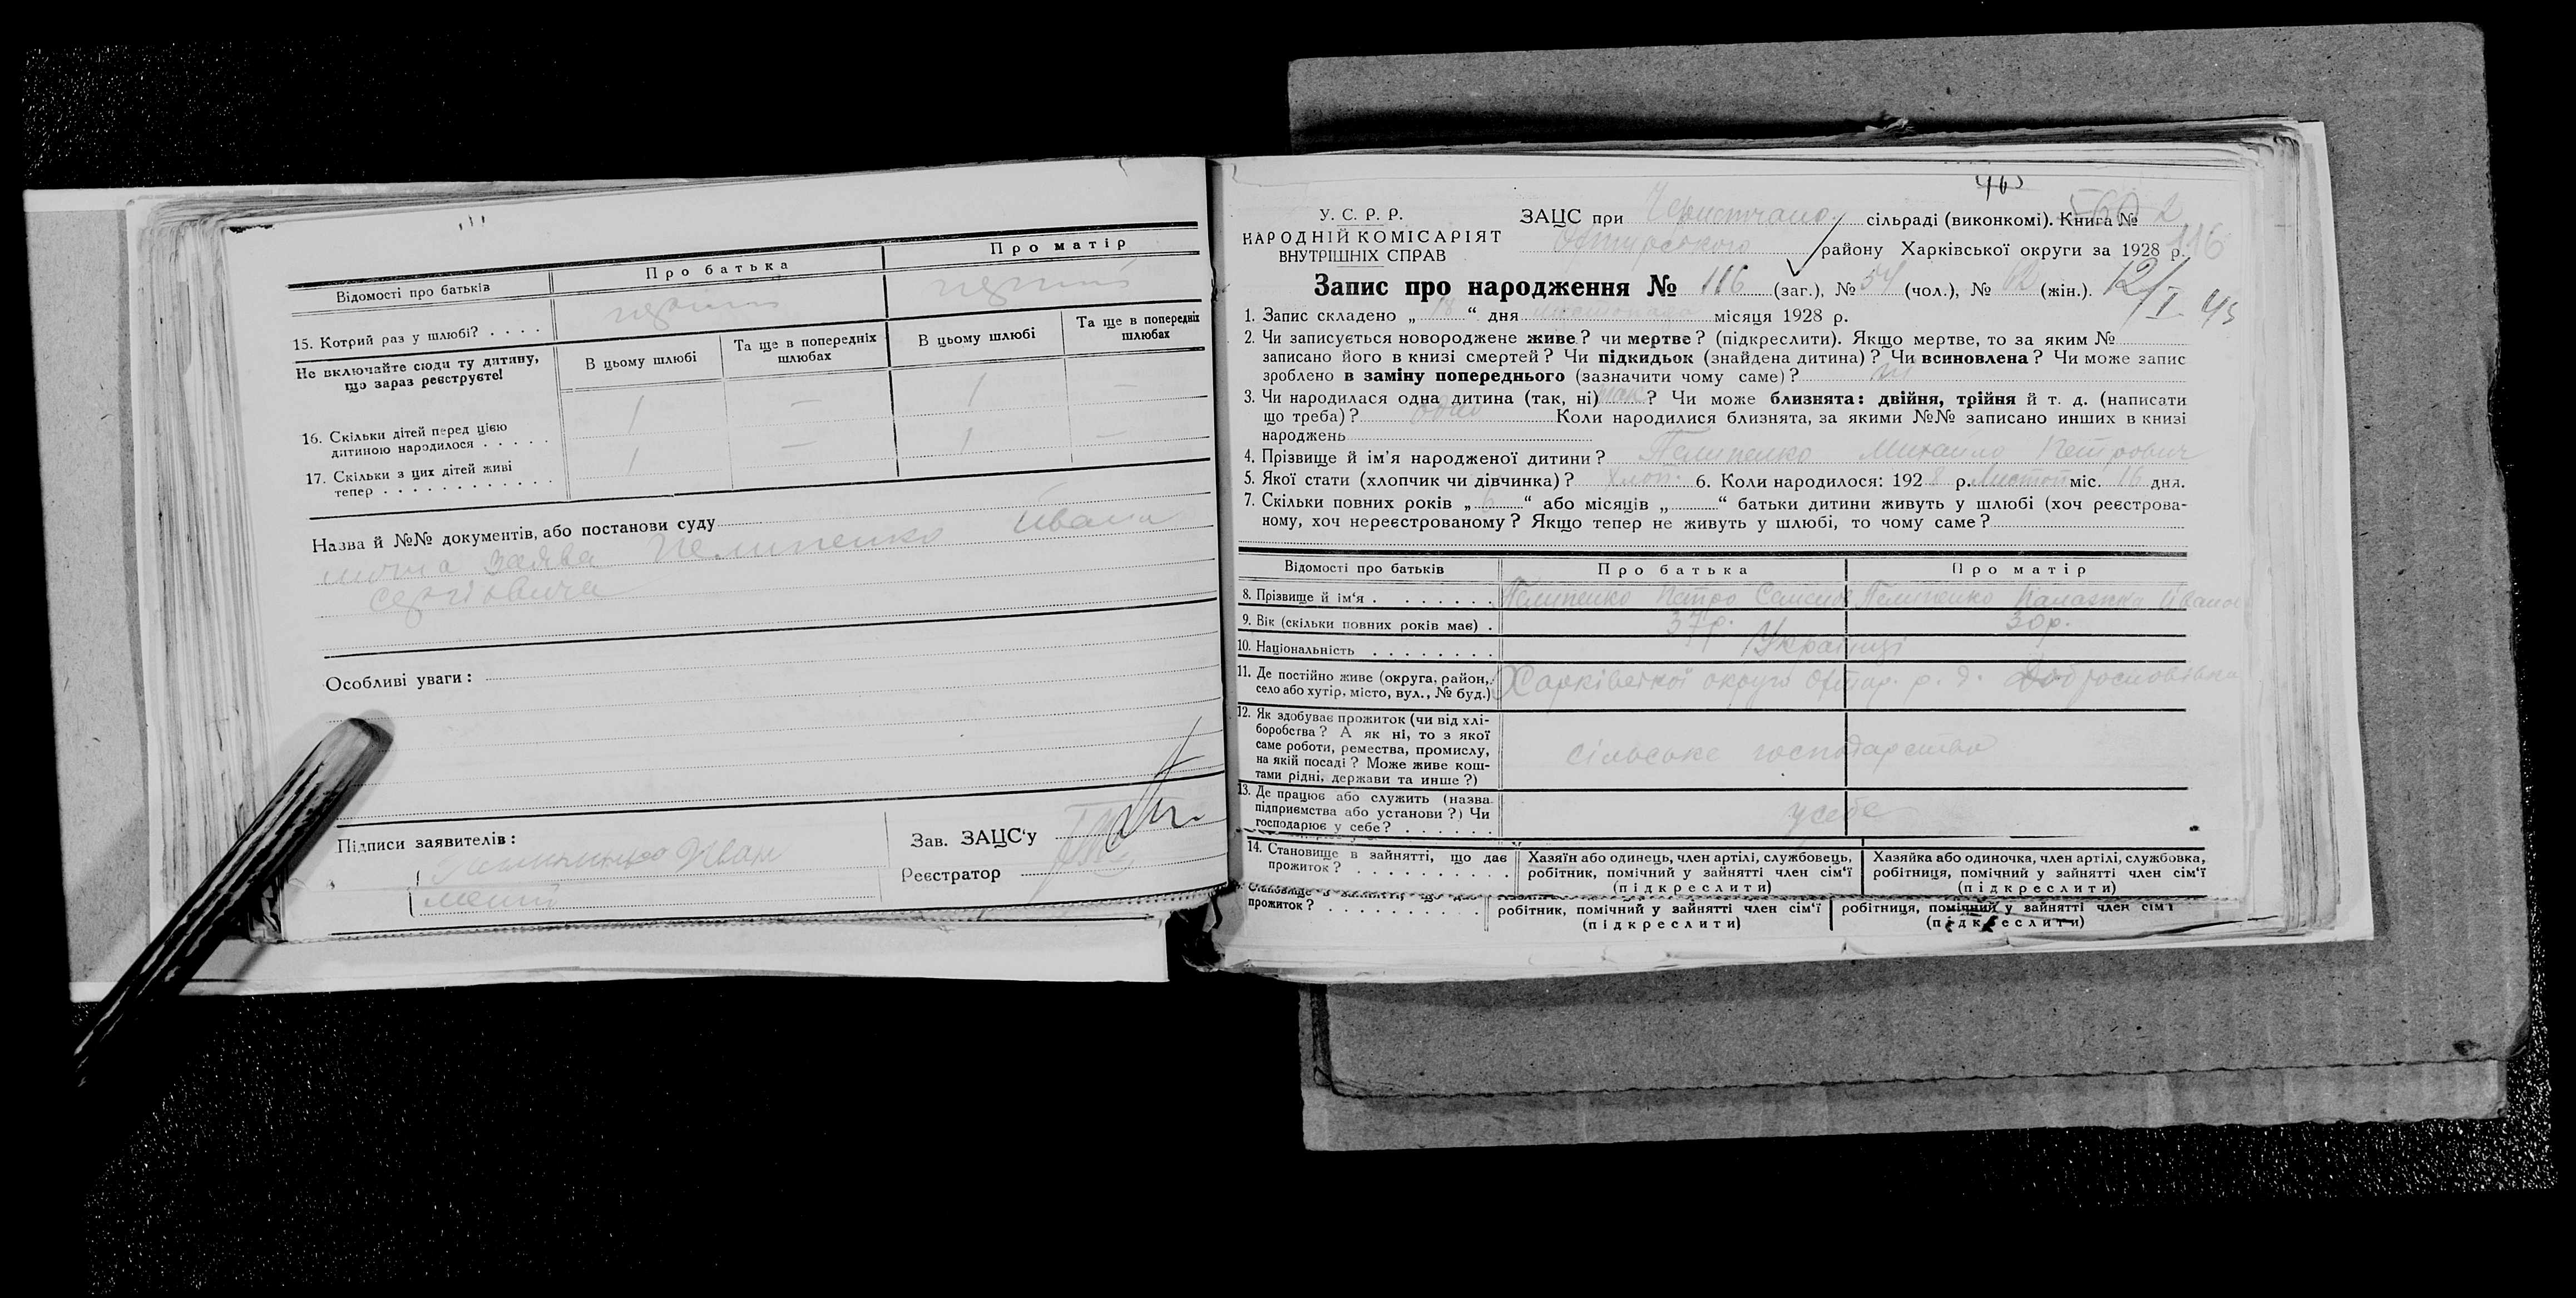 Відомості про батьків
Про батька
Про матір
15. Котрий раз у шлюбі? . . . .
перший
перший
Не включайте сюди ту дитину,
що зараз реєструєте!
В цьому шлюбі
Та ще в попередніх
шлюбах
В цьому шлюбі
Та ще в попередніх
шлюбах
16. Скільки дітей перед цією
дитиною народилося . . . . .
1 — 1 —
17. Скільки з цих дітей живі
тепер . . . . . . . . . . . .
1 — 1 —
Назва й №№ документів, або постанови суду
заява Пелипенко Івана
Сергіовича
Особливі уваги:
Підписи заявителів:
Іван
Зав. ЗАЦС'у
Реєстратор
У. С. Р. Р.
НАРОДНІЙ КОМІСАРІЯТ
ВНУТРІШНІХ СПРАВ
ЗАЦС при сільраді (виконкомі). Книга № 2
району Харківської округи за 1928 р. 116
Запис про народження № 116 (заг.), № 54 (чол.), № 62 (жін.). 12/I 45
1. Запис складено „ 18 “ дня місяця 1928 р.
2. Чи записується новороджене живе? чи мертве? (підкреслити). Якщо мертве, то за яким №
записано його в книзі смертей? Чи підкидьок (знайдена дитина)? Чи всиновлена? Чи може запис
зроблено в заміну попереднього (зазначити чому саме)? ні
3. Чи народилася одна дитина (так, ні) так? Чи може близнята: двійня, трійня й т. д. (написати
що треба)? одно Коли народилися близнята, за якими №№ записано инших в книзі
народжень
4. Прізвище й ім'я народженої дитини? Пелипенко Михайло Петрович
5. Якої стати (хлопчик чи дівчинка)? хлоп. 6. Коли народилося: 1928 р. Листоп. міс. 16 дня.
7. Скільки повних років „ 6 “ або місяців „ “ батьки дитини живуть у шлюбі (хоч реєстрова-
ному, хоч нереєстрованому? Якщо тепер не живуть у шлюбі, то чому саме?
Відомості про батьків
Про батька
Про матір
8. Прізвище й ім'я . . . . . . .
Пелипенко Петро
Пелипенко Палажка Іванов
9. Вік (скільки повних років має) .
37р.
30р.
10. Національність . . . . . . . .
Українці
11. Де постійно живе (округа, район,
село або хутір, місто, вул., № буд.)
Харківської округи Охтир. р. д. Доброславівка
12. Як здобуває прожиток (чи від хлі-
боробства? А як ні, то з якої
саме роботи, ремества, промислу,
на якій посаді? Може живе кош-
тами рідні, держави та инше?)
сільське господарство
13. Де працює або служить (назва
підприємства або установи?) Чи
господарює у себе? . . . . . .
у себе
14. Становище в зайнятті, що дає
прожиток? . . . . . . . . . .
Хазяїн або одинець, член артілі, службовець,
робітник, помічний у зайнятті член сім'ї
(підкреслити)
Хазяйка або одиночка, член артілі, службовка,
робітниця, помічний у зайнятті член сім'ї
(підкреслити)
прожиток? . . . . . . . . . .
робітник, помічний у зайнятті член сім'ї
(підкреслити)
робітниця, помічний у зайнятті член сім'ї
(підкреслити)